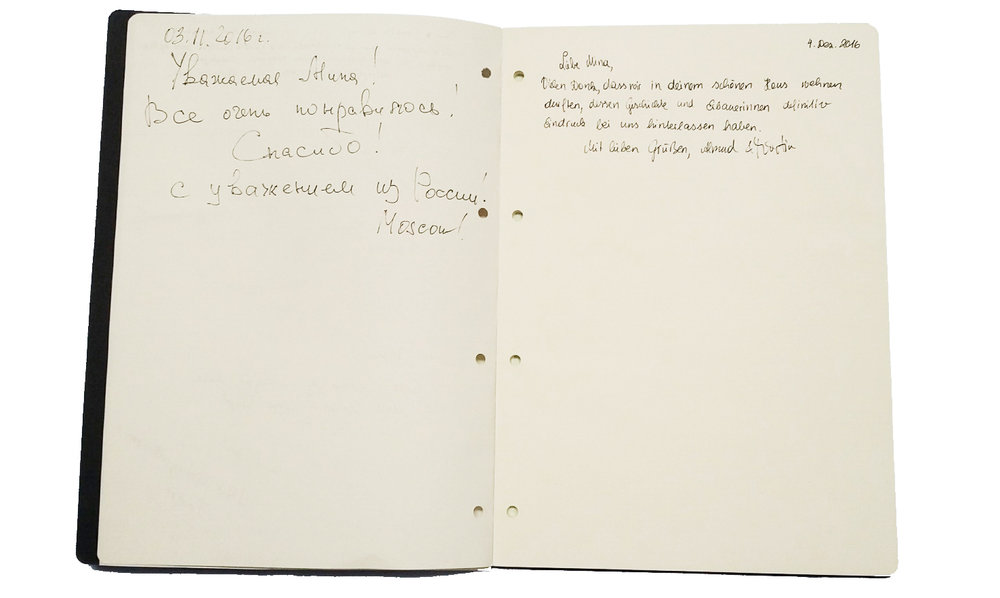 03.11.2016г.
Уважаемая Мина!
Все очень понравилось!
Спасибо!
с уважением из России!
Moscow!
4. Dez. 2016
Liebe Mina,
Vielen Dank, dass wir in deinem schönen Haus wohnen
durften, dessen Geschichte und Erbauerinnen definitiv
Eindruck bei uns hinterlassen haben.
Mit lieben Grüßen,